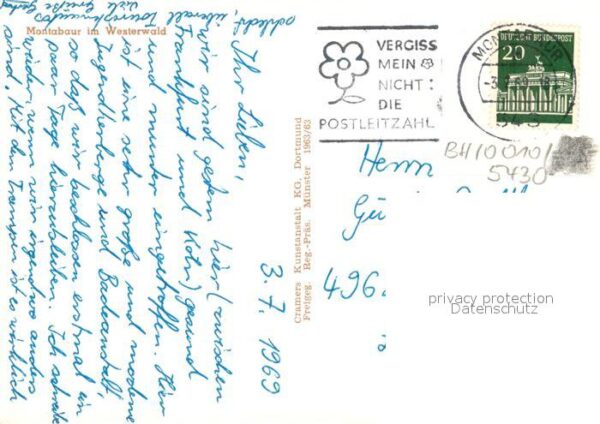 Montabaur im Westerwald
3. 7. 1969
Ihr Lieben,
wir sind gestern hier (zwischen
Frankfurt und Köln) gesund
und munter eingetroffen. Hier
ist eine sehr große und moderne
Jugendherberge und Badeanstalt,
so daß wir beschlossen erstmal ein
paar Tage hierzubleiben. Ich schreibe
wieder, wenn wir irgendwo anders
sind. Mit dem Trampen ist es wirklich
schlecht, überall
Viele Grüße
Cramers Kunstanstalt KG. Dortmund
Freigeg. Reg.-Präs. Münster 1963/63
VERGISS
MEIN
NICHT:
DIE
POSTLEITZAHL
DEUTSCHE BUNDESPOST
20
BH/0010/
5430
Herrn
Gü
496.
privacy protection
Datenschutz